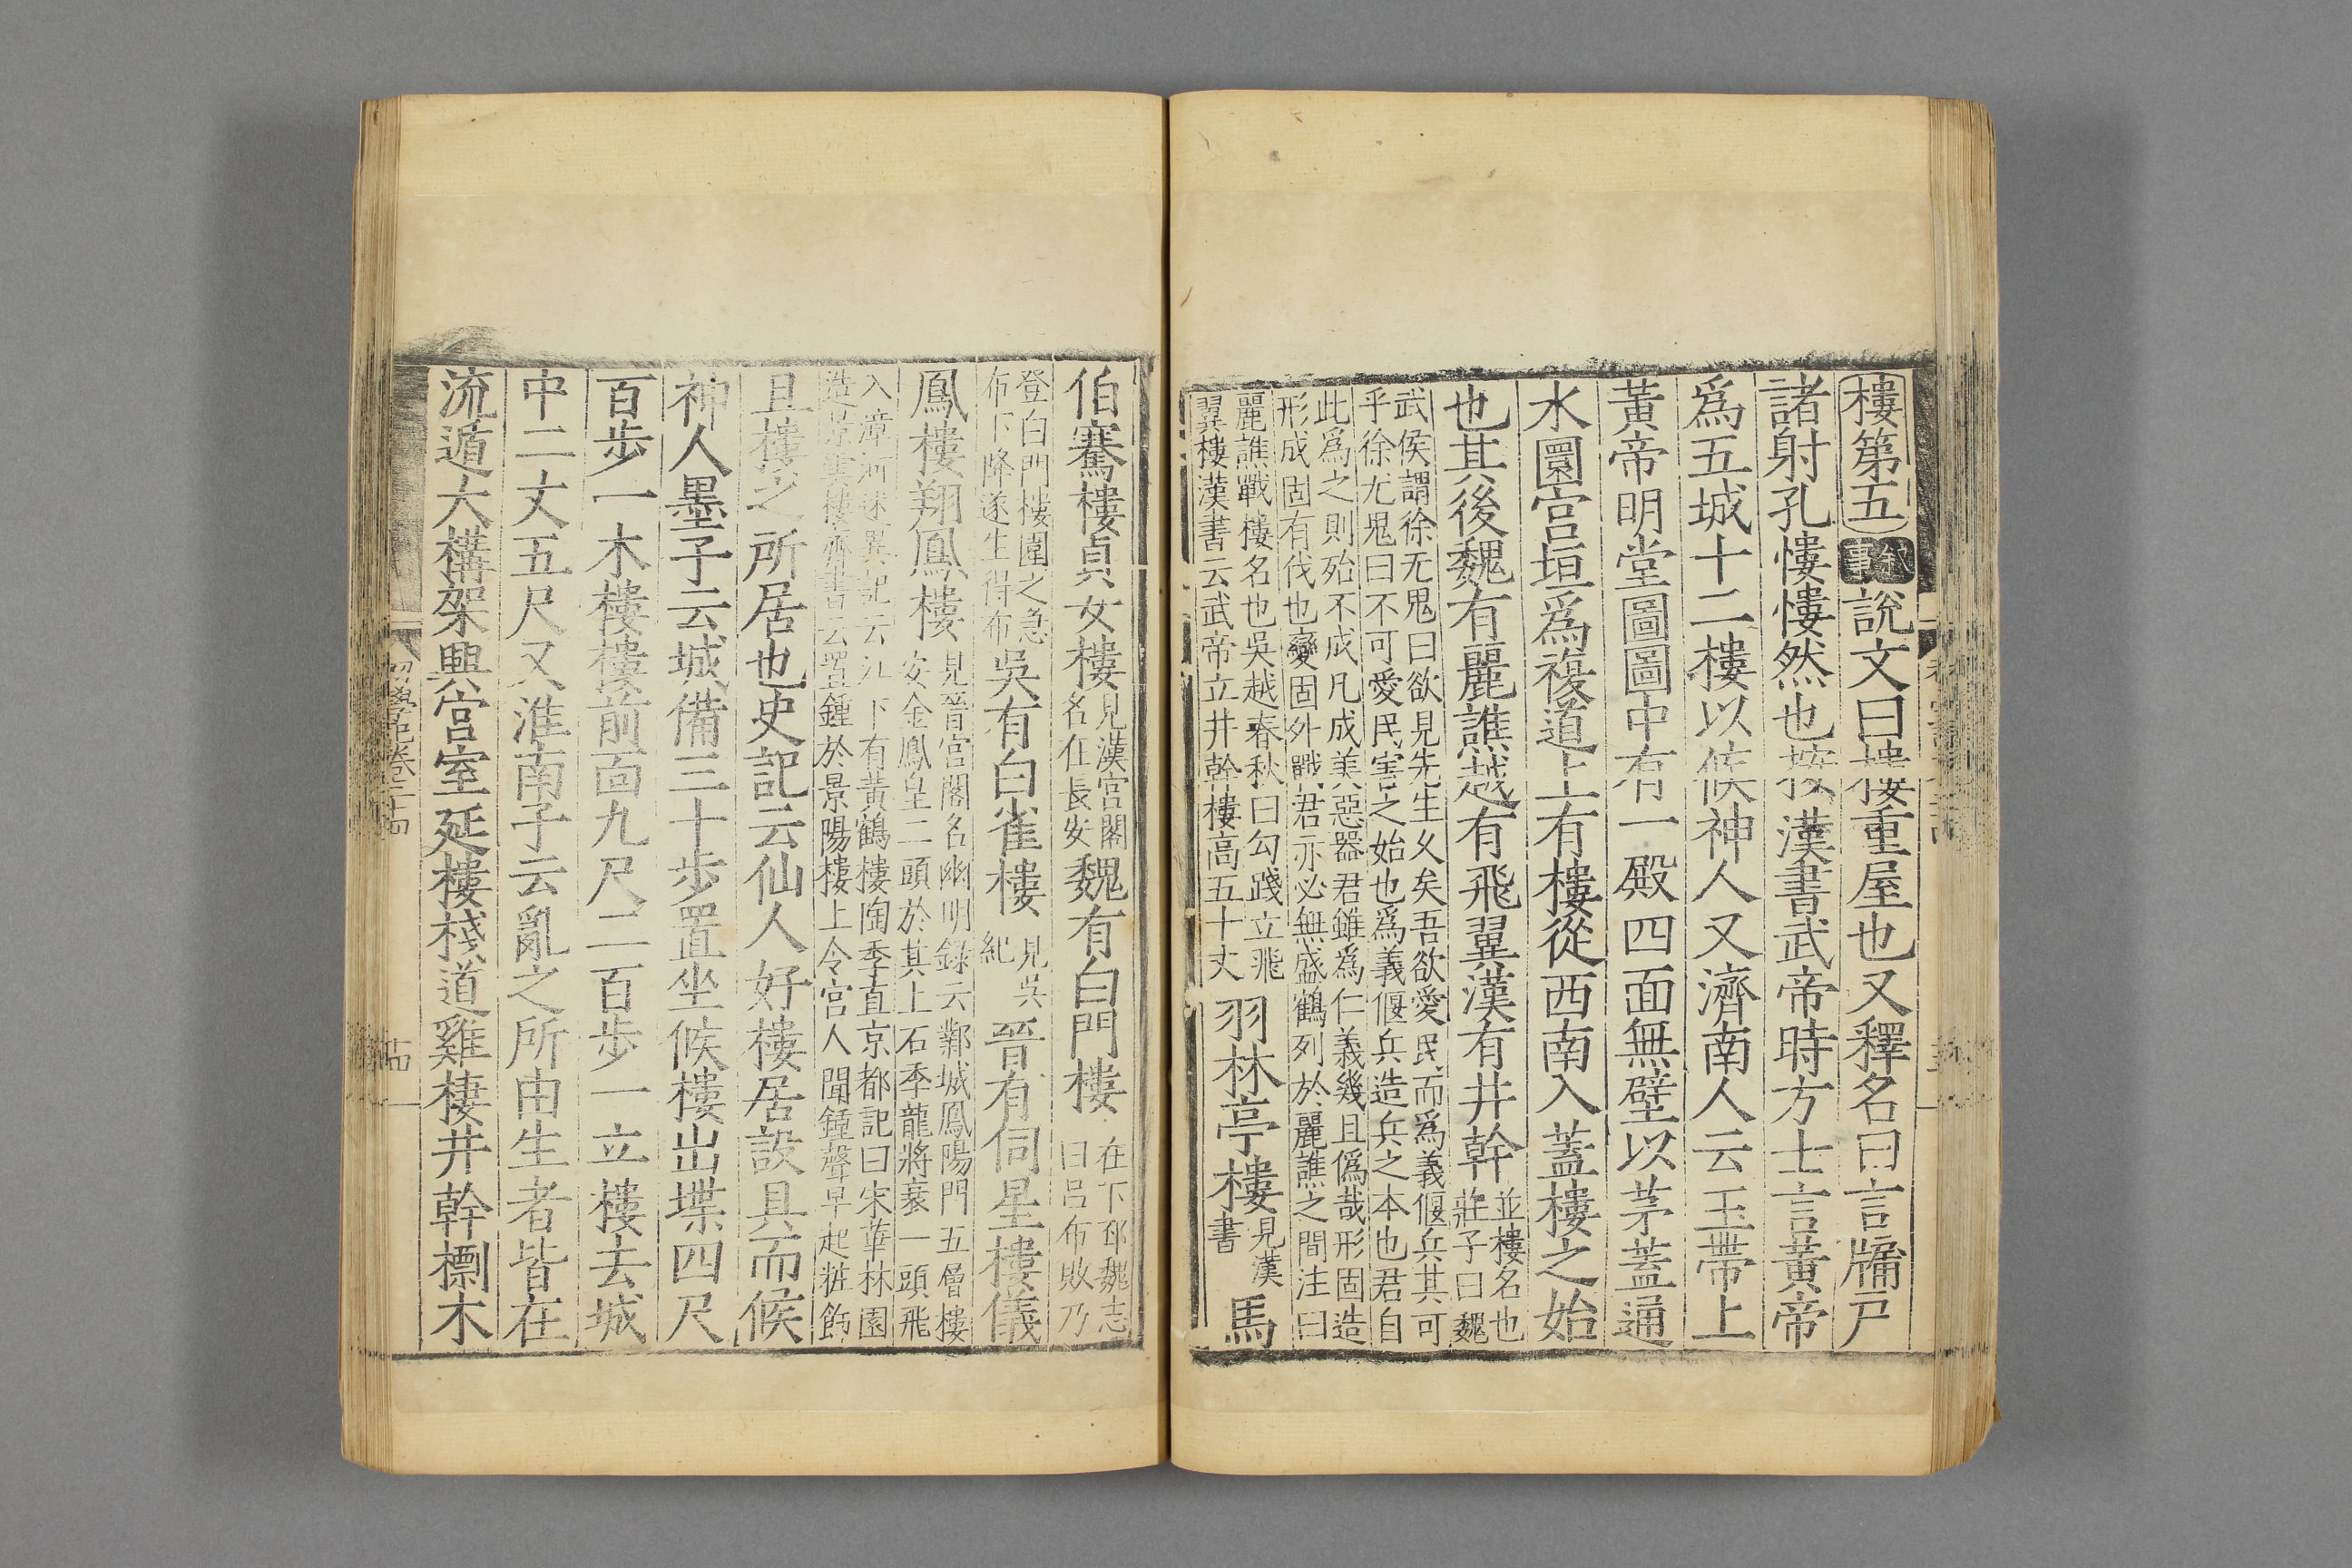 樓第五 敘事 說文曰樓重屋也又釋名曰言牖戶
諸射孔慺慺然也按漢書武帝時方士言黃帝
爲五城十二樓以候神人又濟南人云玉帶上
黃帝明堂圖圖中有一殿四面無壁以茅蓋通
水圜宮垣爲複道上有樓從西南入蓋樓之始
也其後魏有麗譙越有飛翼漢有井幹
並樓名也
莊子曰魏
武侯謂徐无鬼曰欲見先生久矣吾欲愛民而爲義偃兵其可
乎徐无鬼曰不可愛民害之始也爲義偃兵造兵之本也君自
此爲之則殆不成凡成美惡器君雖爲仁義幾且僞哉形固造
形成固有伐也變固外戰君亦必無盛鶴列於麗譙之間注曰
麗譙戰樓名也吳越春秋曰勾踐立飛
翼樓漢書云武帝立井幹樓高五十丈
羽林亭樓
見漢
書
馬
伯騫樓貞女樓
見漢宮閣
名在長安
魏有白門樓
在下邳魏志
曰呂布敗乃
登白門樓圍之急
布下降遂生得布
吳有白雀樓
見吳
紀
晉有伺星樓儀
鳳樓翔鳳樓
見晉宮閣名幽明錄云鄴城鳳陽門五層樓
安金鳳皇二頭於其上石季龍將衰一頭飛
入漳河述異記云江下有黃鶴樓陶季直京都記曰宋華林園
造景雲樓齊書云置鍾於景陽樓上令宮人聞鍾聲早起粧飾
且樓之所居也史記云仙人好樓居設具而候
神人墨子云城備三十步置坐候樓出堞四尺
百步一木樓樓前面九尺二百步一立樓去城
中二丈五尺又淮南子云亂之所由生者皆在
流遁大構架興宮室延樓棧道雞棲井幹標木
初學記卷二十四
十四